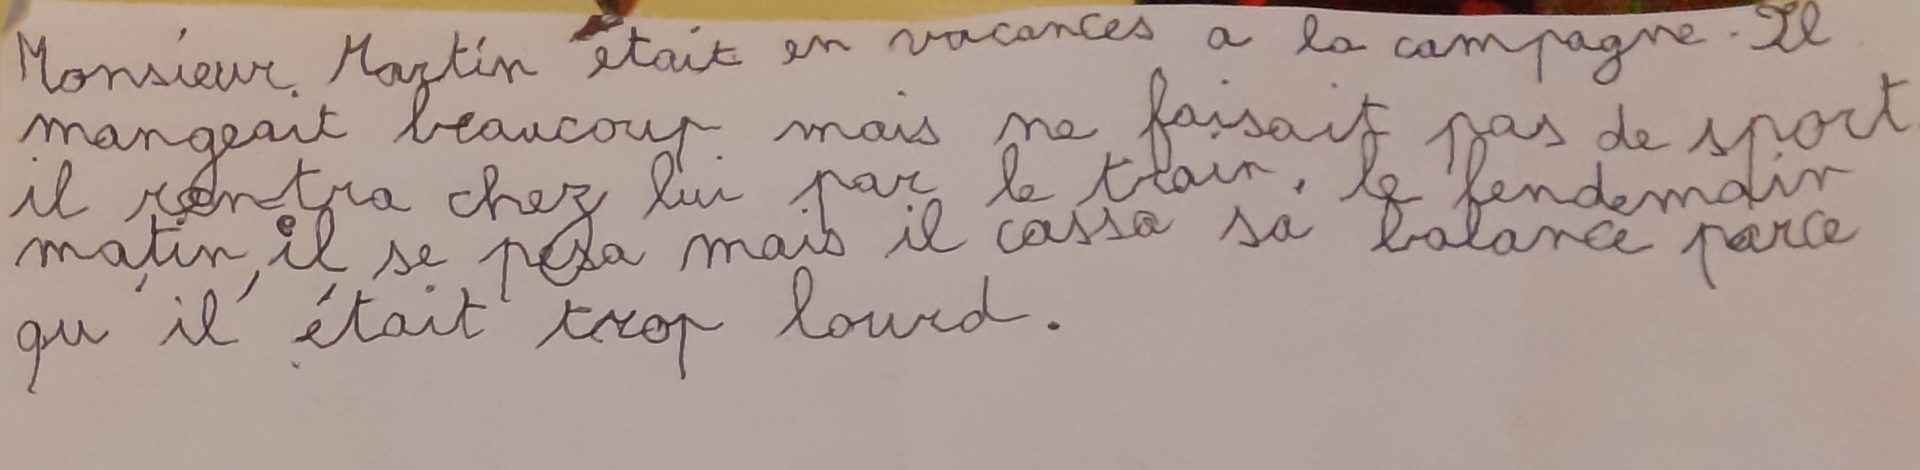 Monsieur Martin était en vacances a la campagne. Il
mangeait beaucoup mais ne faisait pas de sport
il rentra chez lui par le train. le lendemain
matin, il se pesa mais il cassa sa balance parce
qu'il était trop lourd.